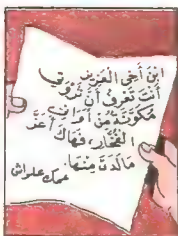 ابْنَ أَخِي العَزِيز
أَنْتَ تَعْرِفُ أَنَّ ثَرْوَتِي
مُكَوَّنَةٌ مِنْ أَوَانِي
الفُخَّارِ، فَهَاكَ أَعَزَّ
مَا لَدَيَّ مِنْهَا.
عمك علواش